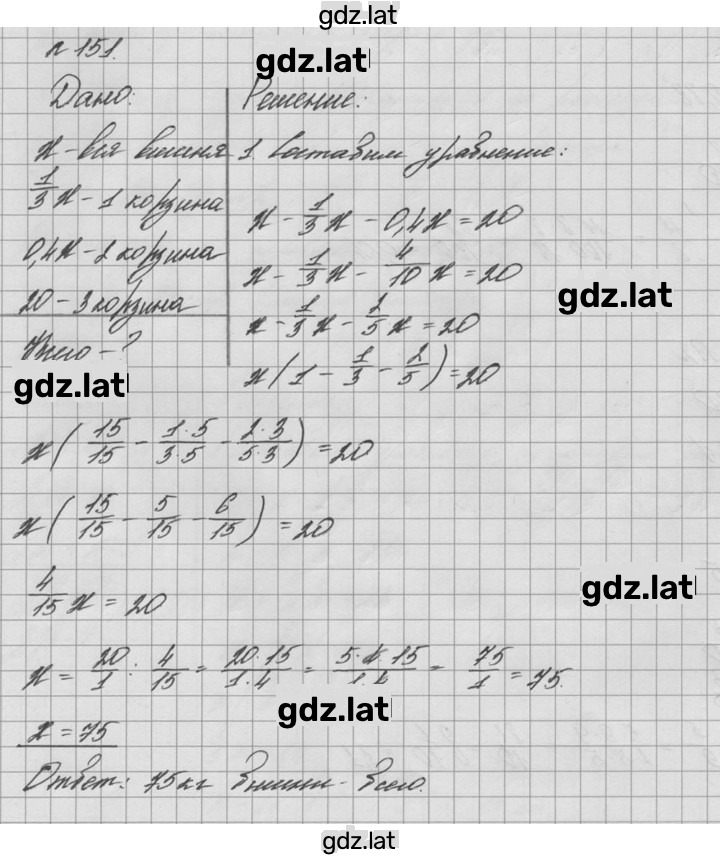 gdz.lat
№ 151.
gdz.lat
Дано:
x - вся вишня
1/3 x - 1 корзина
0,4x - 2 корзина
20 - 3 корзина
Всего - ?
gdz.lat
Решение:
1. Составим уравнение:
x - 1/3 x - 0,4x = 20
x - 1/3 x - 4/10 x = 20
gdz.lat
x - 1/3 x - 2/5 x = 20
x(1 - 1/3 - 2/5) = 20
x(15/15 - 1·5/3·5 - 2·3/5·3) = 20
x(15/15 - 5/15 - 6/15) = 20
gdz.lat
4/15 x = 20
x = 20/1 : 4/15 = 20·15/1·4 = 5·4·15/1·4 = 75/1 = 75.
gdz.lat
x = 75
Ответ: 75 кг вишни - всего.
gdz.lat